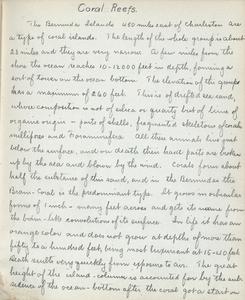 Coral Reefs.
The Bermuda Islands 450 miles east of Charleston are
a type of coral islands. The length of the whole group is about
25 miles and they are very narrow. A few miles from the
shore the ocean reaches 10-12000 feet in depth, forming a
sort of tower on the ocean bottom. The elevation of the groups
has a maximum of 260 feet. This is of drifted sea sand,
whose composition is not of silica or quartz but of lime of
organic origin - parts of shells, fragmental skeletons of corals
millepores and foraminifera. All these animals live just
below the surface, and on death their hard parts are broken
up by the sea and blown by the wind. Corals form about
half the substance of this sand, and in the Bermudas the
Brain-Coral is the predominant type. It grows in spherical
forms of 1 inch - many feet across and gets its name from
the brain-like convolutions of its surface. In life it has an
orange color and does not grow at depths of more than
fifty to a hundred feet, being most luxuriant at 15-20 feet
Death results very quickly from exposure to air. The great
height of the island-column is accounted for by the sub-
sidence of the ocean-bottom after the coral got a start on